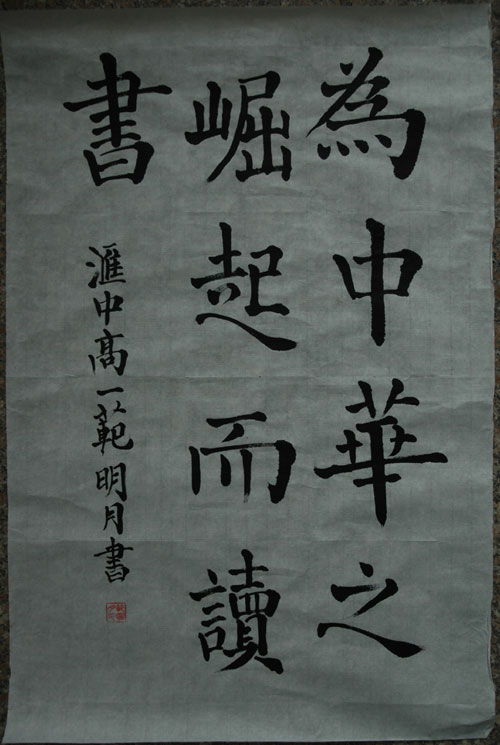 為中華之
崛起而讀
書
滙中高一範明月書